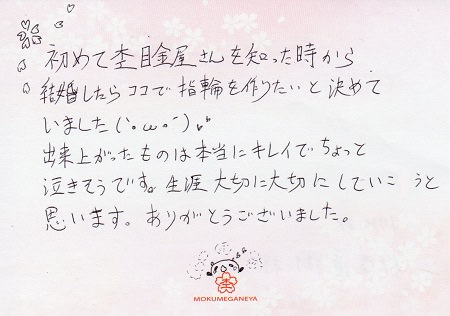 初めて杢目金屋さんを知った時から
結婚したらココで指輪を作りたいと決めて
いました(`・ω・´)♪
出来上がったものは本当にキレイでちょっと
泣きそうです。生涯大切に大切にしていこうと
思います。ありがとうございました。
MOKUMEGANEYA